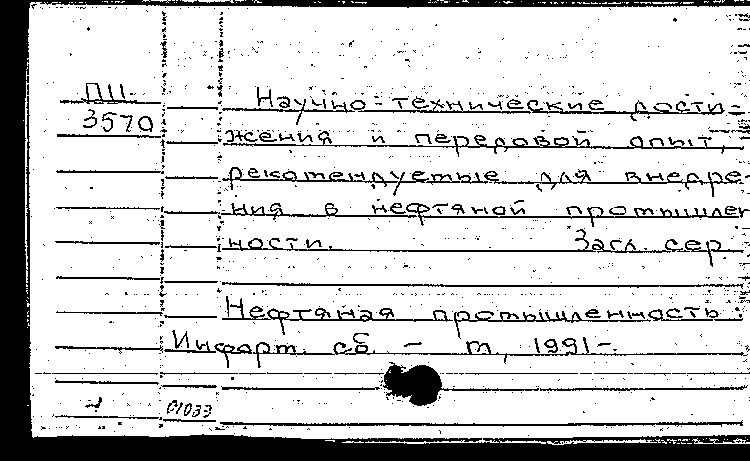 П11-
3570
Научно-технические дости-
жения и передовой опыт,
рекомендуемые для внедре-
ния в нефтяной промышлен
ности. Загл. сер.
Нефтяная промышленность:
Информ. сб. - М., 1991-.
01033